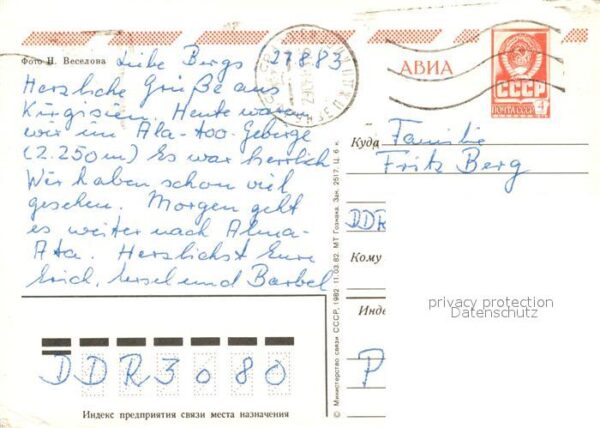 Фото Н. Веселова
Liebe Bergs 27.8.83
Herzliche Grüße aus
Kirgisien. Heute waren
wir im Ala-too-Gebirge
(2.250m) Es war herrlich
Wir haben schon viel
gesehen. Morgen geht
es weiter nach Alma-
Ata. Herzlichst Eure
Erich, und Bärbel
АВИА
СССР
ПОЧТА СССР
4
Куда
Familie
Fritz Berg
DDR
Кому
privacy protection
Datenschutz
Инде
P
DDR3080
Индекс предприятия связи места назначения
© Министерство связи СССР, 1982. 11.03.82. МТ Гознака. Зак. 2517. Ц. 6 к.